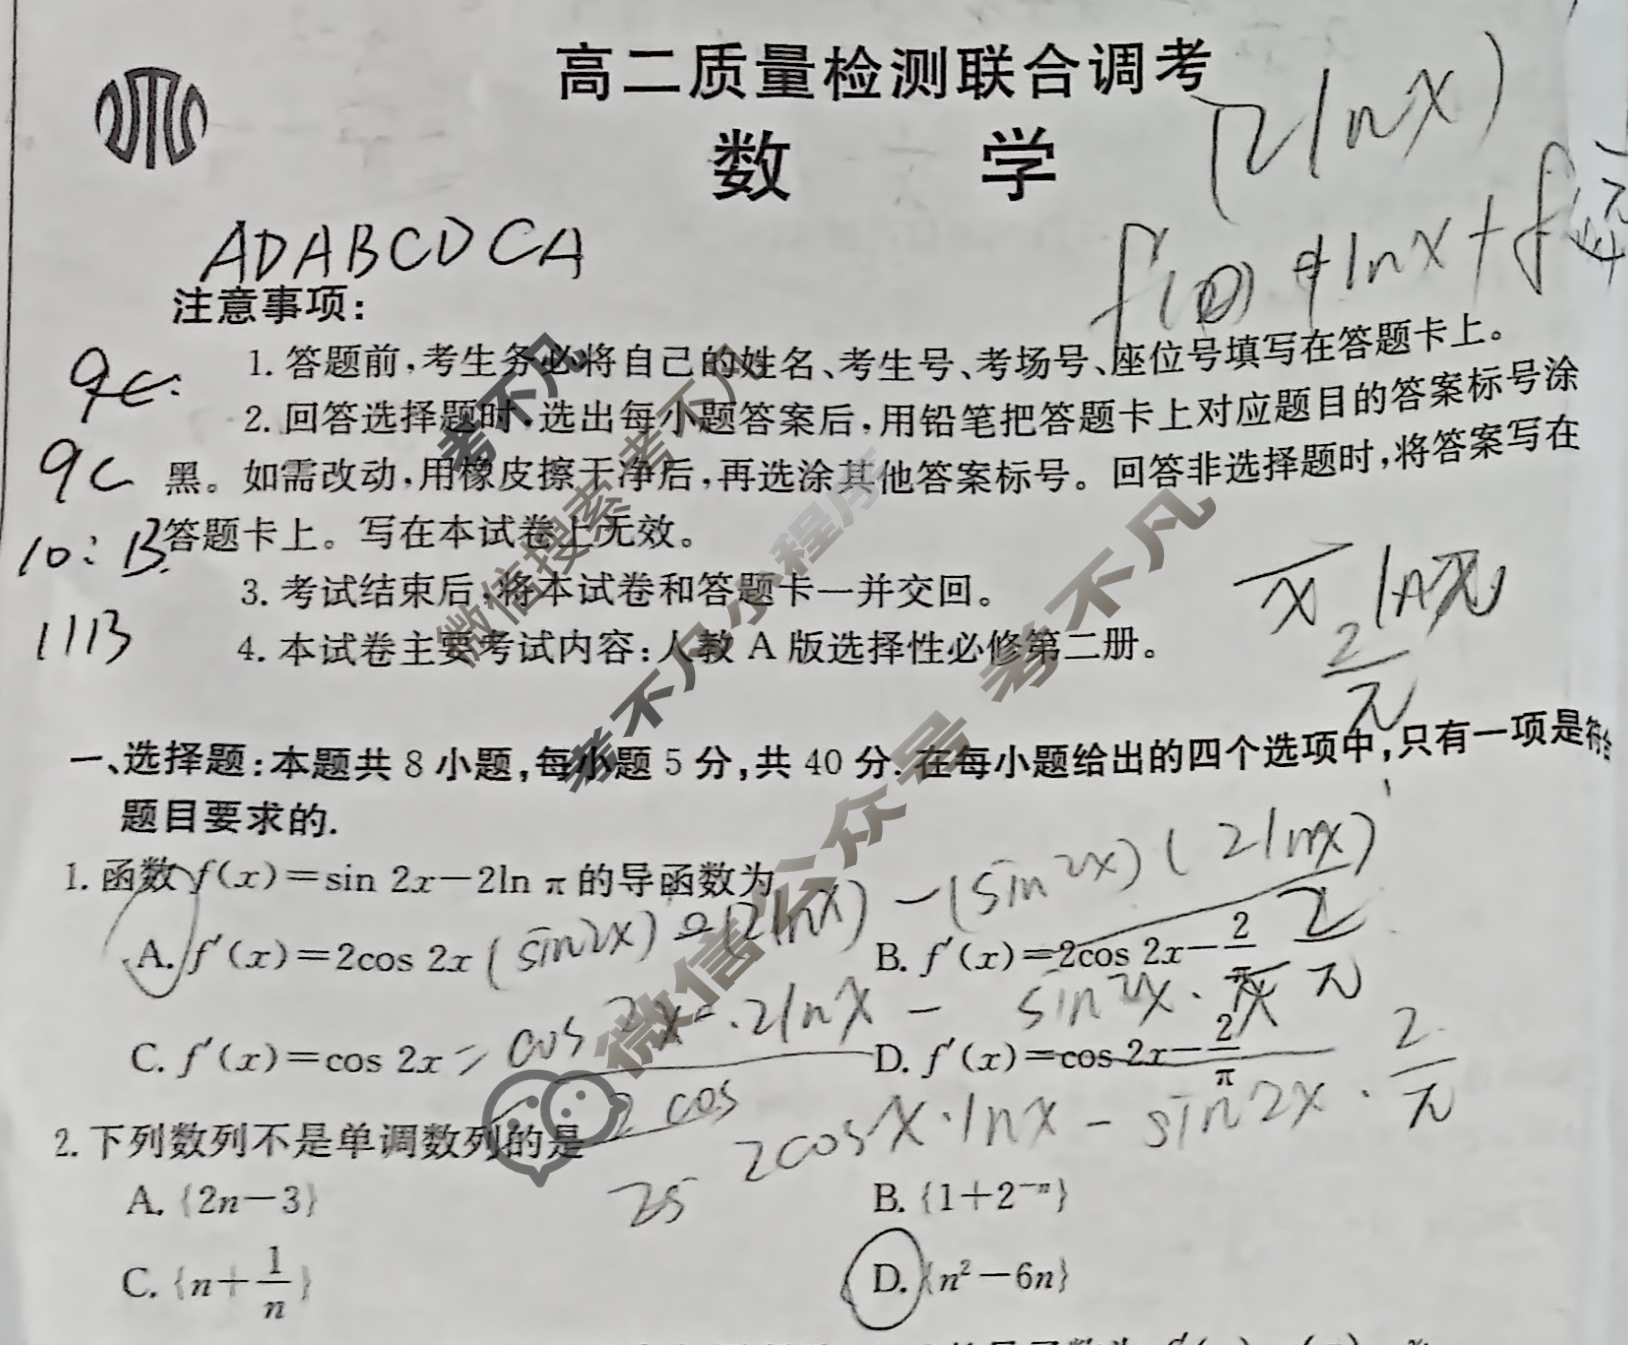 高二质量检测联合调考
数 学
(2lnx)
ADABCDCA
注意事项:
1. 答题前,考生务必将自己的姓名、考生号、考场号、座位号填写在答题卡上。
9C:
2. 回答选择题时,选出每小题答案后,用铅笔把答题卡上对应题目的答案标号涂
9C
黑。如需改动,用橡皮擦干净后,再选涂其他答案标号。回答非选择题时,将答案写在
10: B.
答题卡上。写在本试卷上无效。
3. 考试结束后,将本试卷和答题卡一并交回。
11B
4. 本试卷主要考试内容:人教 A 版选择性必修第二册。
2/π
一、选择题:本题共 8 小题,每小题 5 分,共 40 分. 在每小题给出的四个选项中,只有一项是符合
题目要求的.
1. 函数 f(x)=sin 2x-2ln π 的导函数为
(sin 2x)(2lnx)'
A. f′(x)=2cos 2x
B. f′(x)=2cos 2x-2/π
C. f′(x)=cos 2x
D. f′(x)=cos 2x-2/π
2cosx·lnx - sin2x·2/π
2. 下列数列不是单调数列的是
A. {2n-3}
B. {1+2⁻ⁿ}
C. {n+1/n}
D. {n²-6n}
考不凡
微信搜索 考不凡
考不凡小程序
微信公众号 考不凡